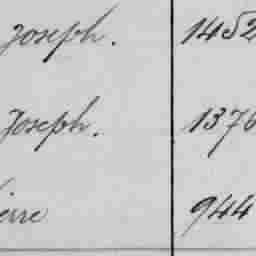 Joseph. 1452
Joseph. 1376
ierre 944